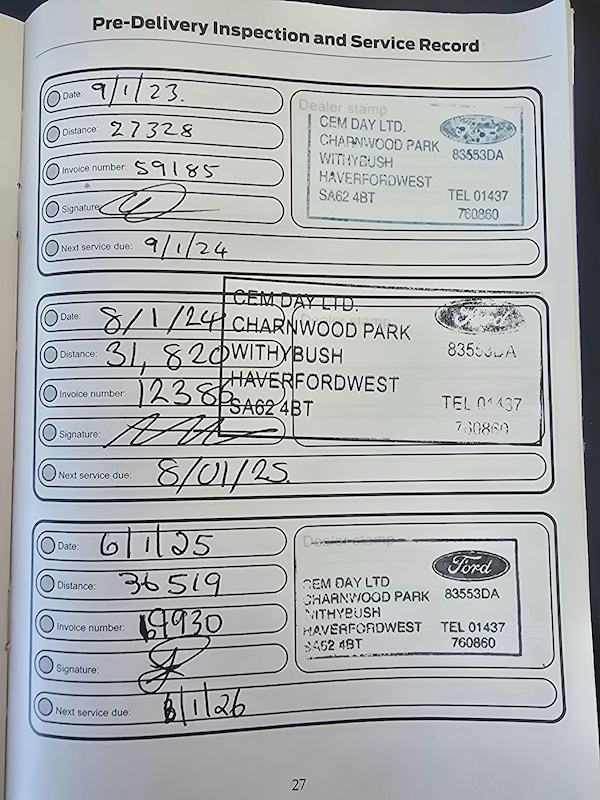 Pre-Delivery Inspection and Service Record
Date: 9/1/23.
Distance: 27328
Invoice number: 59185
Signature:
Next service due: 9/1/24
Dealer stamp
CEM DAY LTD.
CHARNWOOD PARK
WITHYBUSH 83553DA
HAVERFORDWEST
SA62 4BT TEL 01437
760860
Date: 8/1/24
Distance: 31,820
Invoice number:
Signature:
Next service due: 8/01/25
Dealer stamp
CEM DAY LTD.
CHARNWOOD PARK
WITHYBUSH 83553DA
HAVERFORDWEST
SA62 4BT TEL 01437
760860
Date: 6/1/25
Distance: 36519
Invoice number:
Signature:
Next service due:
Dealer stamp
Ford
CEM DAY LTD
CHARNWOOD PARK 83553DA
WITHYBUSH
HAVERFORDWEST TEL 01437
SA62 4BT 760860
27